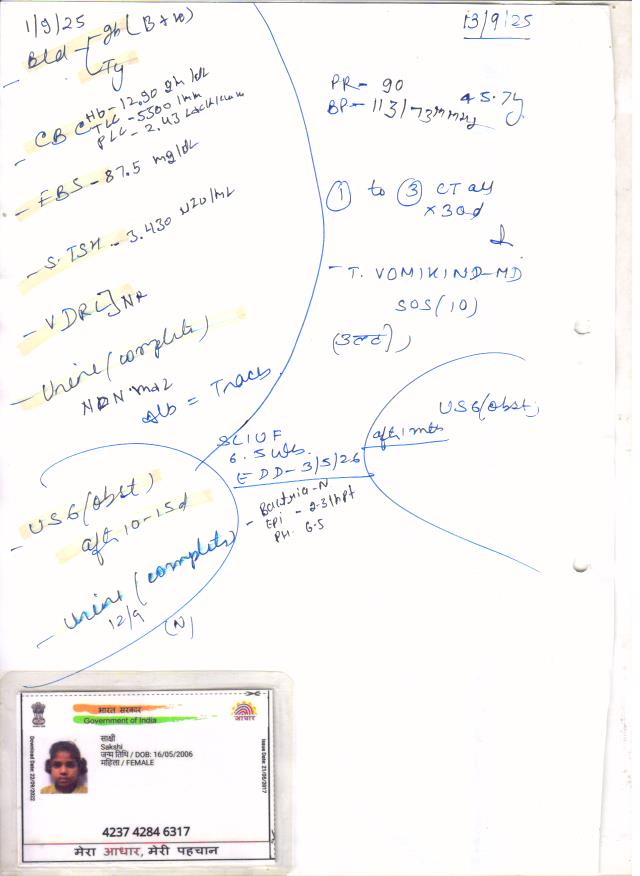 1/9/25
- Bld - gb (B+ve)
Ty
- CBC Hb - 12.90 gm/dl
TLC - 5500/mm
PLC - 2.43 lack/cumm
- FBS - 87.5 mg/dl
- S. TSH - 3.430
- VDRL] NR
- Urine (complete)
Alb = Traces
- USG (obst)
aft 10-15d
SLIUF
6.5 wks.
EDD - 3/5/26
- Urine (complete)
12/9
(N)
- Bactria - N
EPI - 2-3/hpf
PH. 6.5
13/9/25
PR - 90
BP - 113/73 mmHg
45.7
① to ③ CT all
x 30d
- T. VOMIKIND-MD
SOS (10)
USG (obst)
aft 1 mth
भारत सरकार
Government of India
आधार
Download Date: 22/09/2022
Issue Date: 21/06/2017
साक्षी
Sakshi
जन्म तिथि / DOB: 16/05/2006
महिला / FEMALE
4237 4284 6317
मेरा आधार, मेरी पहचान